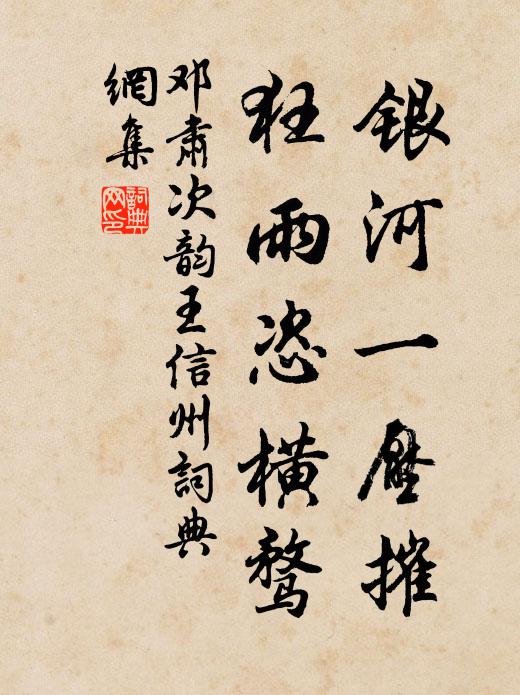 银河一压摧
狂雨恣横骛
邓肃次韵王信州詞典
網集
詞典
网印